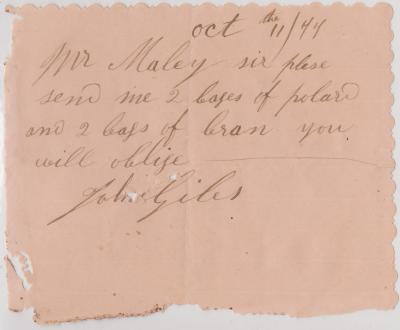 Oct the 11/77
Mr Maley sir plese
send me 2 bages of polard
and 2 bags of bran you
will oblige
John Giles